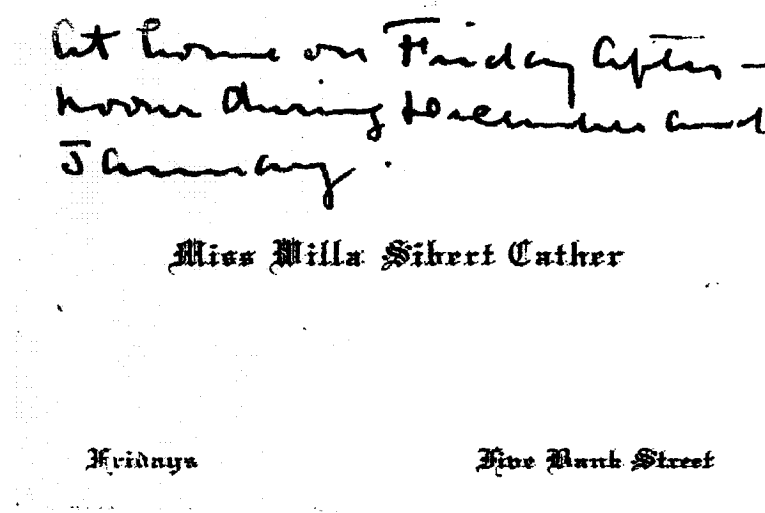 At home on Friday after-
noon during December and
January.
Miss Willa Sibert Cather
Fridays
Five Bank Street